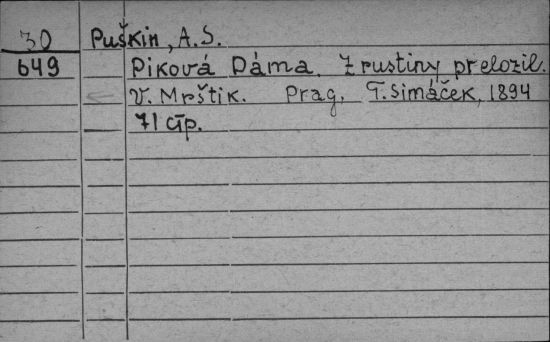 30 Puškin, A.S.
649 Piková Dáma. Z rustiny přeložil.
V. Mrštik. Prag, F. Simáček, 1894
71 стр.